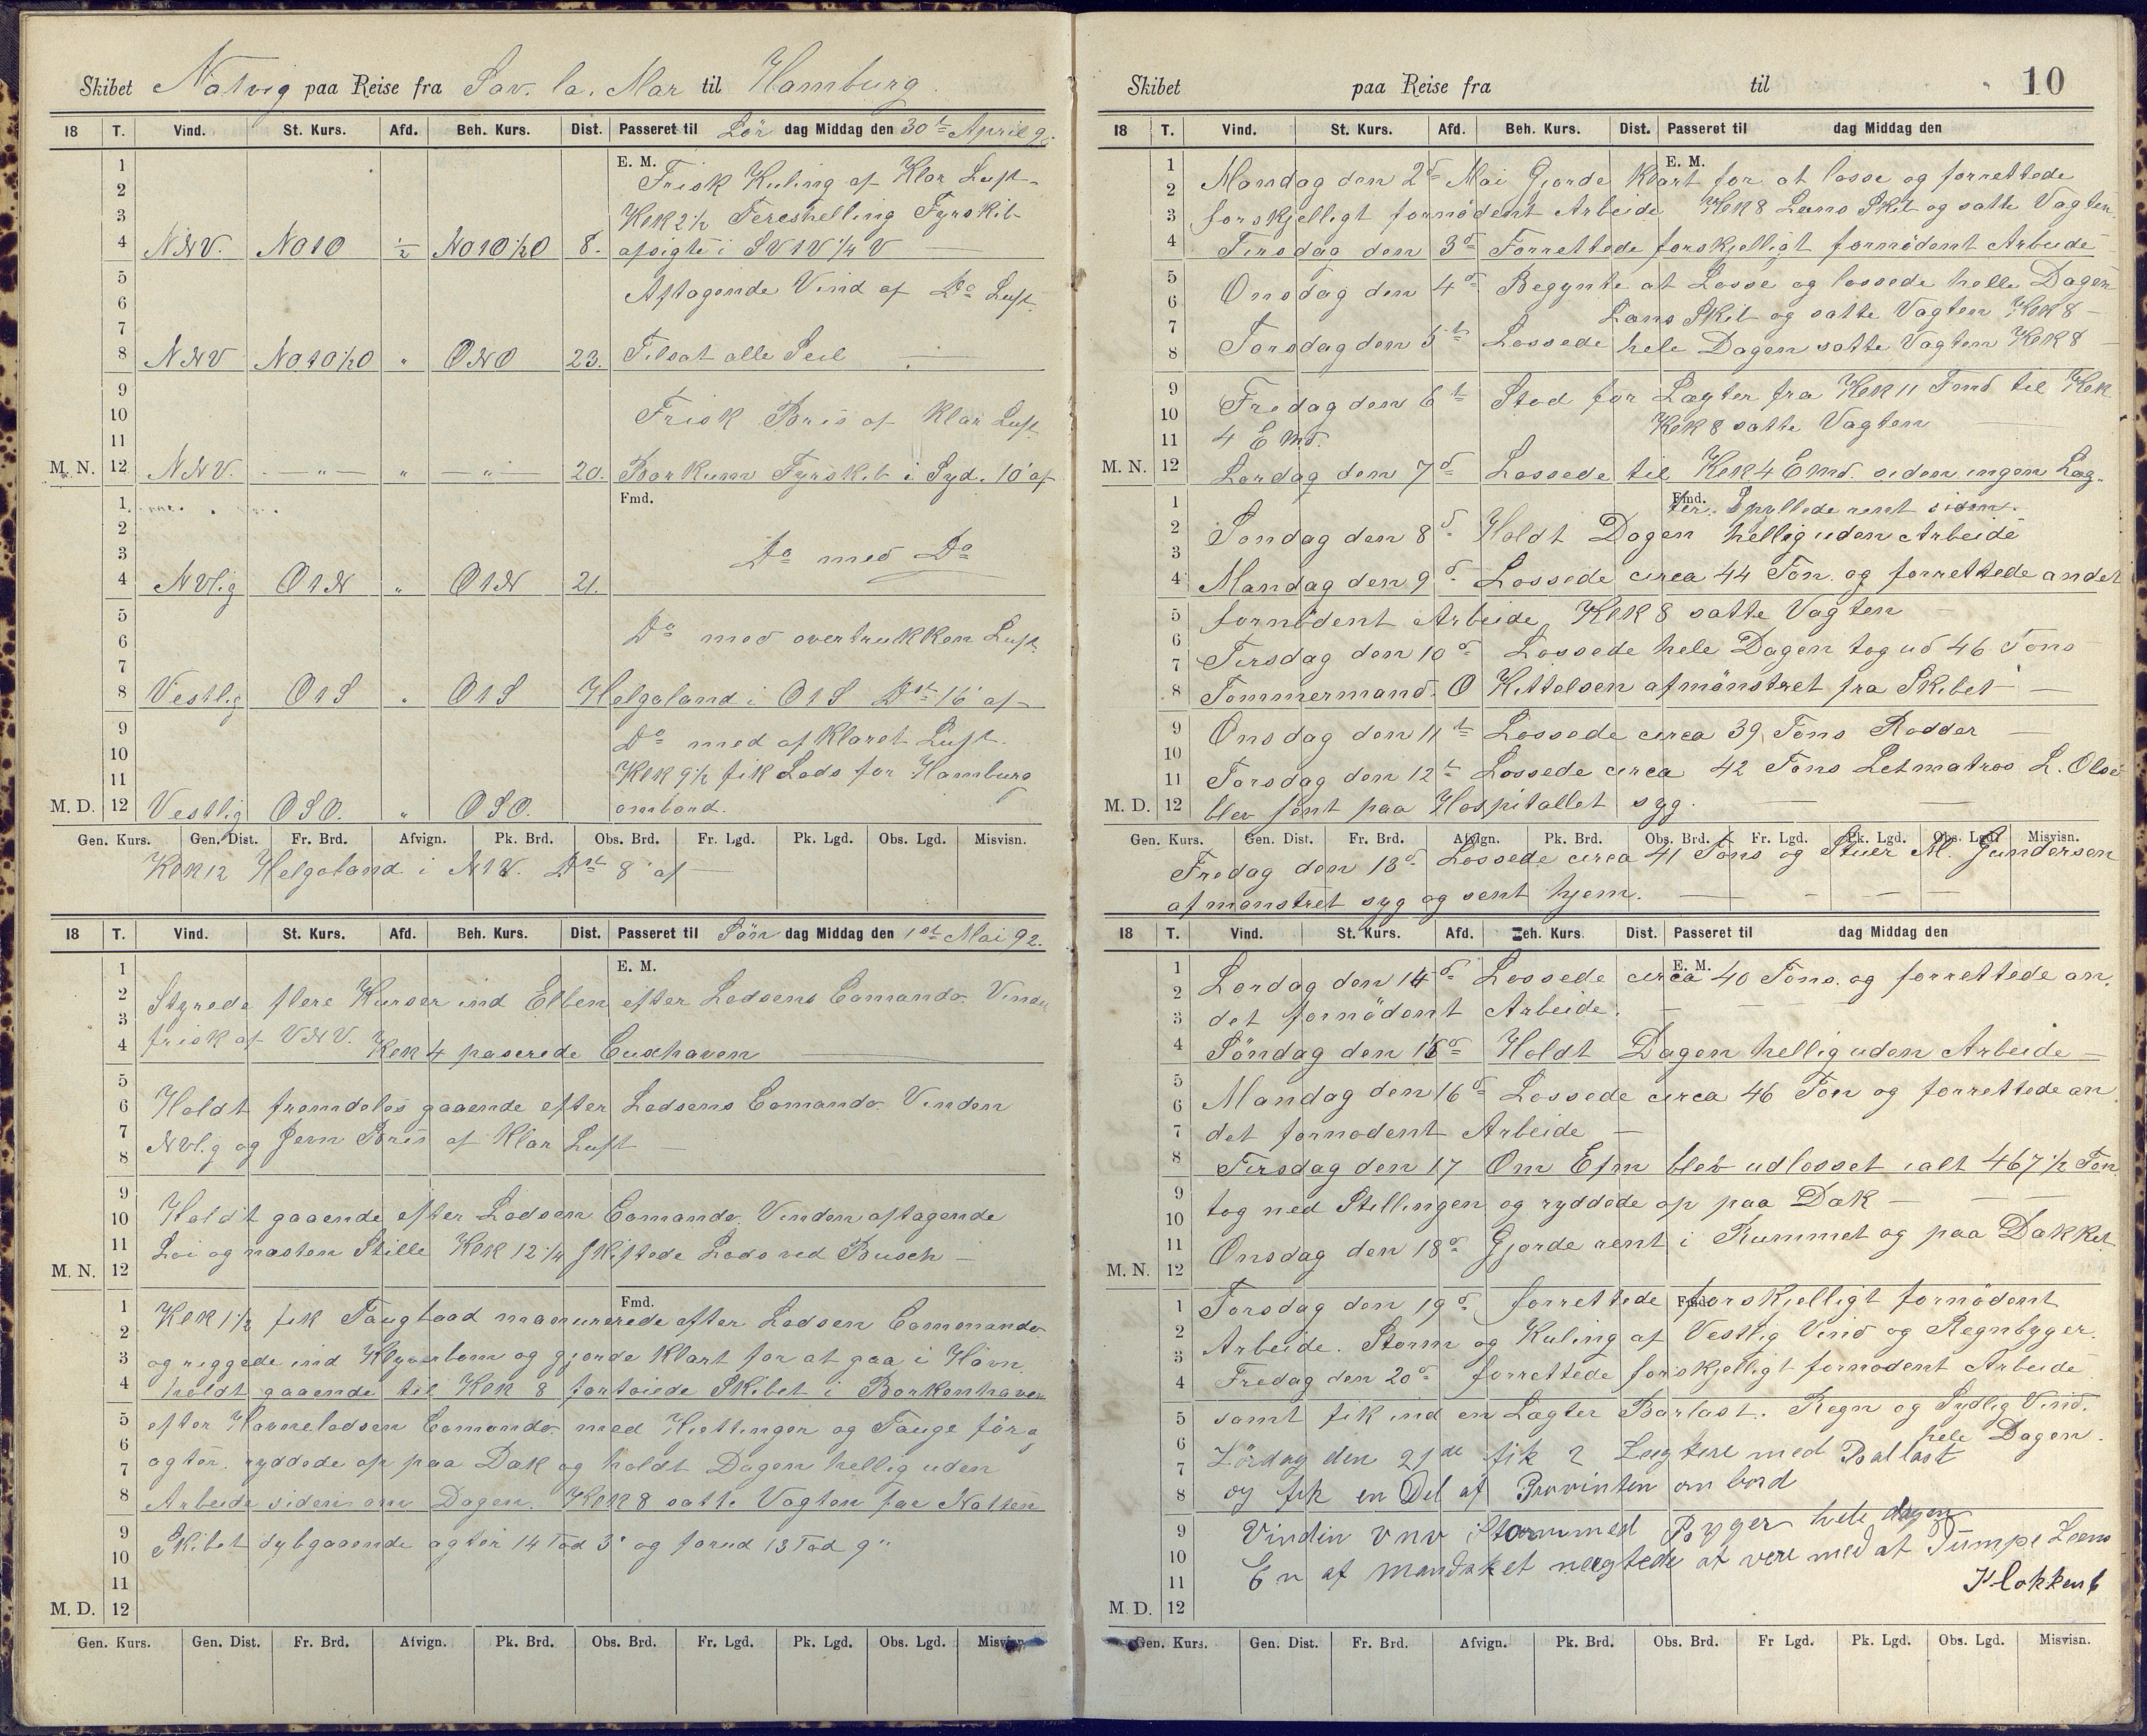 Skibet Natvig paa Reise fra Sav. la. Mar til Hamburg.
18 T. Vind. St. Kurs. Afd. Beh. Kurs. Dist. Passeret til Lör dag Middag den 30te April 92.
E. M.
1 Frisk Kuling af Klar Luft
2
3 Klk 2 1/2 Tereshelling Fyrskib
4 NNV. NO1O 1/2 NO1O 1/2 O 8. afsigte i SV1V 1/4 V
5 Aftagende Vind af Do Luft
6
7
8 NNV NO1O 1/2 O " ONO 23. Tilsat alle Seil
9
10 Frisk Bris af klar Luft
11
M. N. 12 NNV. — " — " — " — 20. Borkum Fyrskib i Syd. 10' af
Fmd.
1
2
3 Do med Do
4 NVlig O1N " O1N 21.
5
6 Do med overtrukken Luft
7
8 Vestlig O1S " O1S Helgoland i O1S Dst 16' af
9 Do med afklaret Luft.
10
11 Klk 9 1/2 fik Lods for Hamburg
M. D. 12 Vestlig OSO. " OSO. ombord.
Gen. Kurs. Gen. Dist. Fr. Brd. Afvign. Pk. Brd. Obs. Brd. Fr. Lgd. Pk. Lgd. Obs. Lgd. Misvisn.
Klk 12 Helgoland i N1V. Dst 8' af
18 T. Vind. St. Kurs. Afd. Beh. Kurs. Dist. Passeret til Sön dag Middag den 1st Mai 92.
E. M.
1
2 Styrede flere Kurser ind Elben efter Lodsens Comando. Vinden
3
4 frisk af VNV. Klk 4 paserede Cuxhaven
5
6 Holdt fremdeles gaaende efter Lodsens Comando Vinden
7
8 NVlig og Jevn Bris af Klar Luft
9
10 Holdt gaaende efter Lodsen Comando. Vinden aftagende
11 Loi og næsten Stille Klk 12 1/4 Skiftede Lods ved Busch
M. N. 12
Fmd.
1 Klk 1 1/2 fik Taugbaad manurerede efter Lodsen Commando.
2
3 og riggede ind Klyverbom og gjorde Klart for at gaa i Havn
4 holdt gaaende til Klk 8 fortoiede Skibet i Borkenhaven
5 efter Havnelodsen Comando med Kjettinger og Tauge för og
6
7 agter. ryddede op paa Dæk og holdt Dagen hellig uden
8 Arbeide siden om Dagen. Klk 8 satte Vagten for Natten
9 Skibet dybgaaende agter 14 Fod 3" og forud 13 Fod 9"
10
11
M. D. 12
Gen. Kurs. Gen. Dist. Fr. Brd. Afvign. Pk. Brd. Obs. Brd. Fr. Lgd. Pk. Lgd. Obs. Lgd. Misvisn.
Skibet paa Reise fra til 10
18 T. Vind. St. Kurs. Afd. Beh. Kurs. Dist. Passeret til dag Middag den
E. M.
1 Mandag den 2d Mai Gjorde Klart for at losse og forrettede
2
3 forskjelligt fornødent Arbeide Klk 8 Lens Skib og satte Vagten
4 Tirsdag den 3d Forrettede forskjelligt fornødent Arbeide
5 Onsdag den 4d Begynte at Losse og lossede helle Dagen
6
7 Læns Skib og satte Vagten Klk 8
8 Torsdag den 5te Lossede hele Dagen satte Vagten Klk 8
9 Fredag den 6te Stod for Lægter fra Klk 11 Fmd til Klk
10 Klk 8 satte Vagten
11 4 Emd.
M. N. 12 Lørdag den 7d Lossede til Klk 4 Emd. siden ingen Læg-
Fmd.
1 ter. Spyllede rent siden.
2 Søndag den 8d Holdt Dagen hellig uden Arbeide
3
4 Mandag den 9d Lossede circa 44 Ton. og forrettede andet
5 fornødent Arbeide, Klk 8 satte Vagten
6
7 Tirsdag den 10d Lossede hele Dagen tog ud 46 Tons
8 Tømmermand. O Kittelsen afmønstret fra Skibet
9 Onsdag den 11te Lossede circa 39 Tons Rødder
10
11 Torsdag den 12te Lossede circa 42 Tons Letmatros L. Olse
M. D. 12 blev sent paa Hospitallet syg.
Gen. Kurs. Gen. Dist. Fr. Brd. Afvign. Pk. Brd. Obs. Brd. Fr. Lgd. Pk. Lgd. Obs. Lgd. Misvisn.
Fredag den 13d Lossede circa 41 Tons og Stuer M. Gundersen
afmønstret syg og sent hjem.
18 T. Vind. St. Kurs. Afd. Beh. Kurs. Dist. Passeret til dag Middag den
E. M.
1 Lørdag den 14d Lossede circa 40 Tons. og forrettede an-
2
3 det fornødent Arbeide.
4 Søndag den 15d Holdt Dagen hellig uden Arbeide
5
6 Mandag den 16d Lossede circa 46 Ton og forrettede an
7 det fornødent Arbeide
8 Tirsdag den 17 Om Efm blev udlosset ialt 467 1/2 Ton
9
10 tog ned Stillingen og ryddede op paa Dæk
11 Onsdag den 18d Gjorde rent i Rummet og paa Dækket
M. N. 12
Fmd.
1 Torsdag den 19d forrettede forskjelligt fornødent
2
3 Arbeide. Storm og Kuling af Vestlig Vind og Regnbyger.
4 Fredag den 20d forrettede forskjelligt fornødent Arbeide
5 samt fik ind en Lægter Barlast. Regn og Sydlig Vind.
6 hele Dagen.
7 Lördag den 21de fik 2 Lægtere med Ballast
8 og fik en Del af Provinten om bord
9 Vinden VNV Storm med Byger hele dagen
10 En af mandsket nægtede at vere med at Pumpe Lens
11 Klokken 6
M. D. 12
Gen. Kurs. Gen. Dist. Fr. Brd. Afvign. Pk. Brd. Obs. Brd. Fr Lgd. Pk. Lgd. Obs. Lgd. Misvisn.